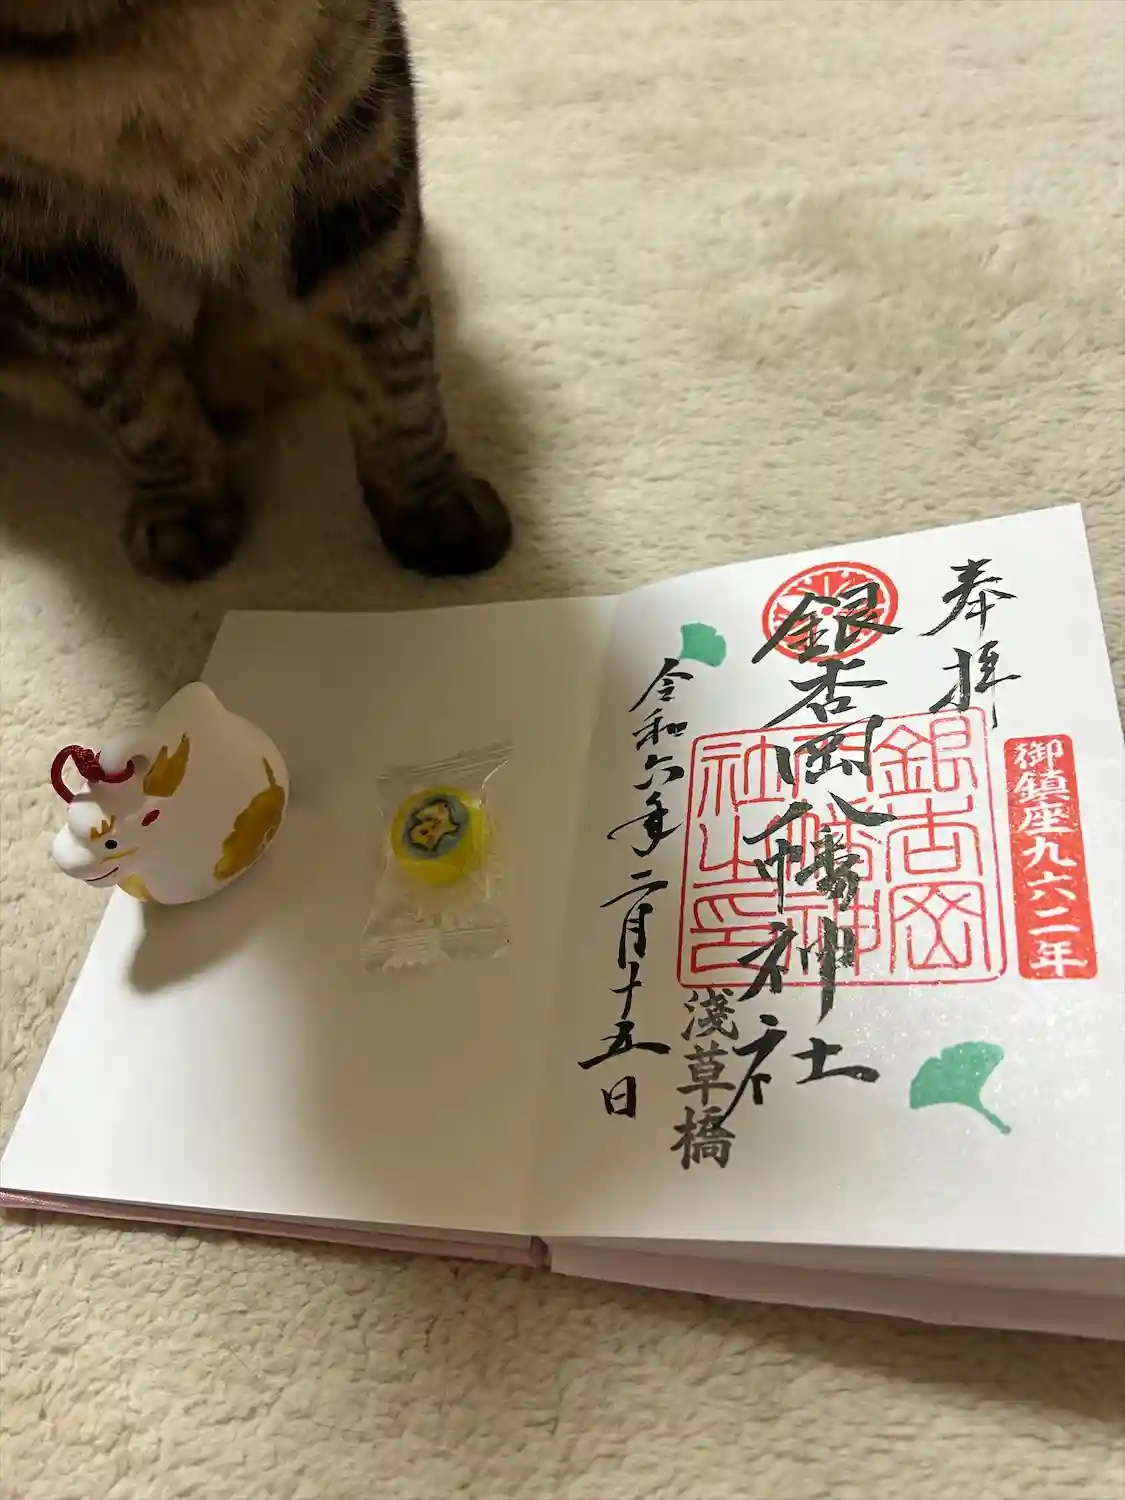 奉拝
御鎮座九六二年
銀杏岡八幡神社
銀杏岡八幡神社之印
浅草橋
令和六年二月十五日